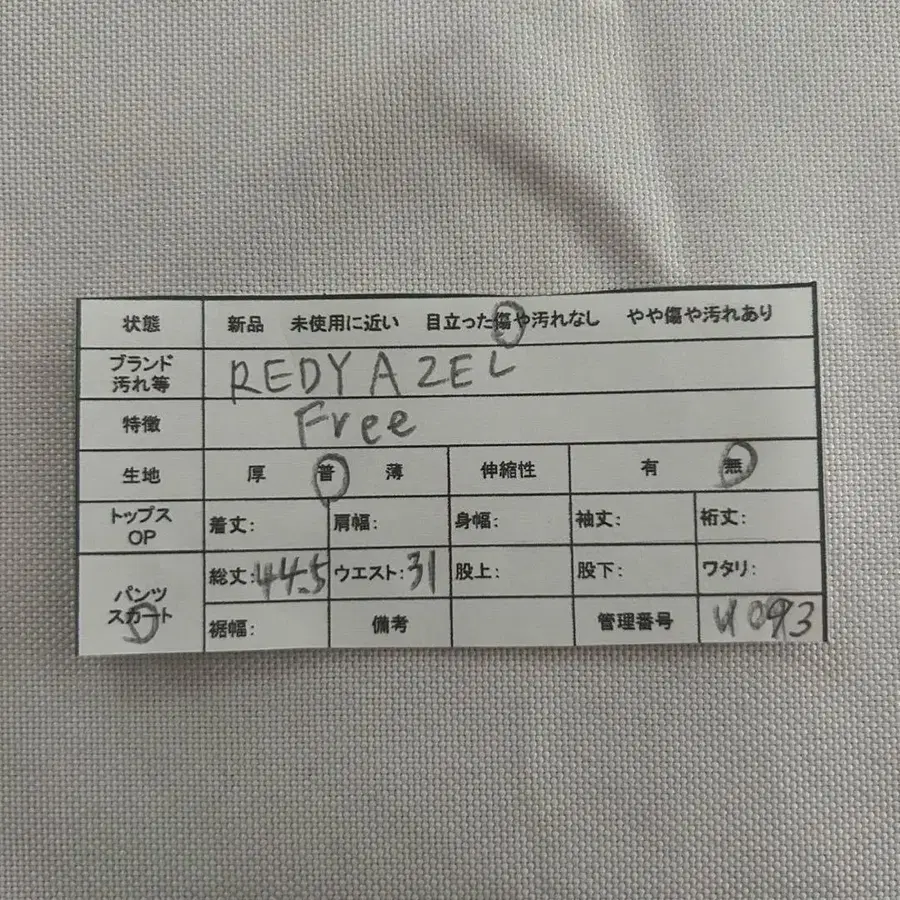 状態 新品 未使用に近い 目立った傷や汚れなし やや傷や汚れあり
ブランド
汚れ等 REDYAZEL
特徴 Free
生地 厚 普 薄 伸縮性 有 無
トップス
OP 着丈: 肩幅: 身幅: 袖丈: 裄丈:
パンツ
スカート 総丈:44.5 ウエスト:31 股上: 股下: ワタリ:
裾幅: 備考 管理番号